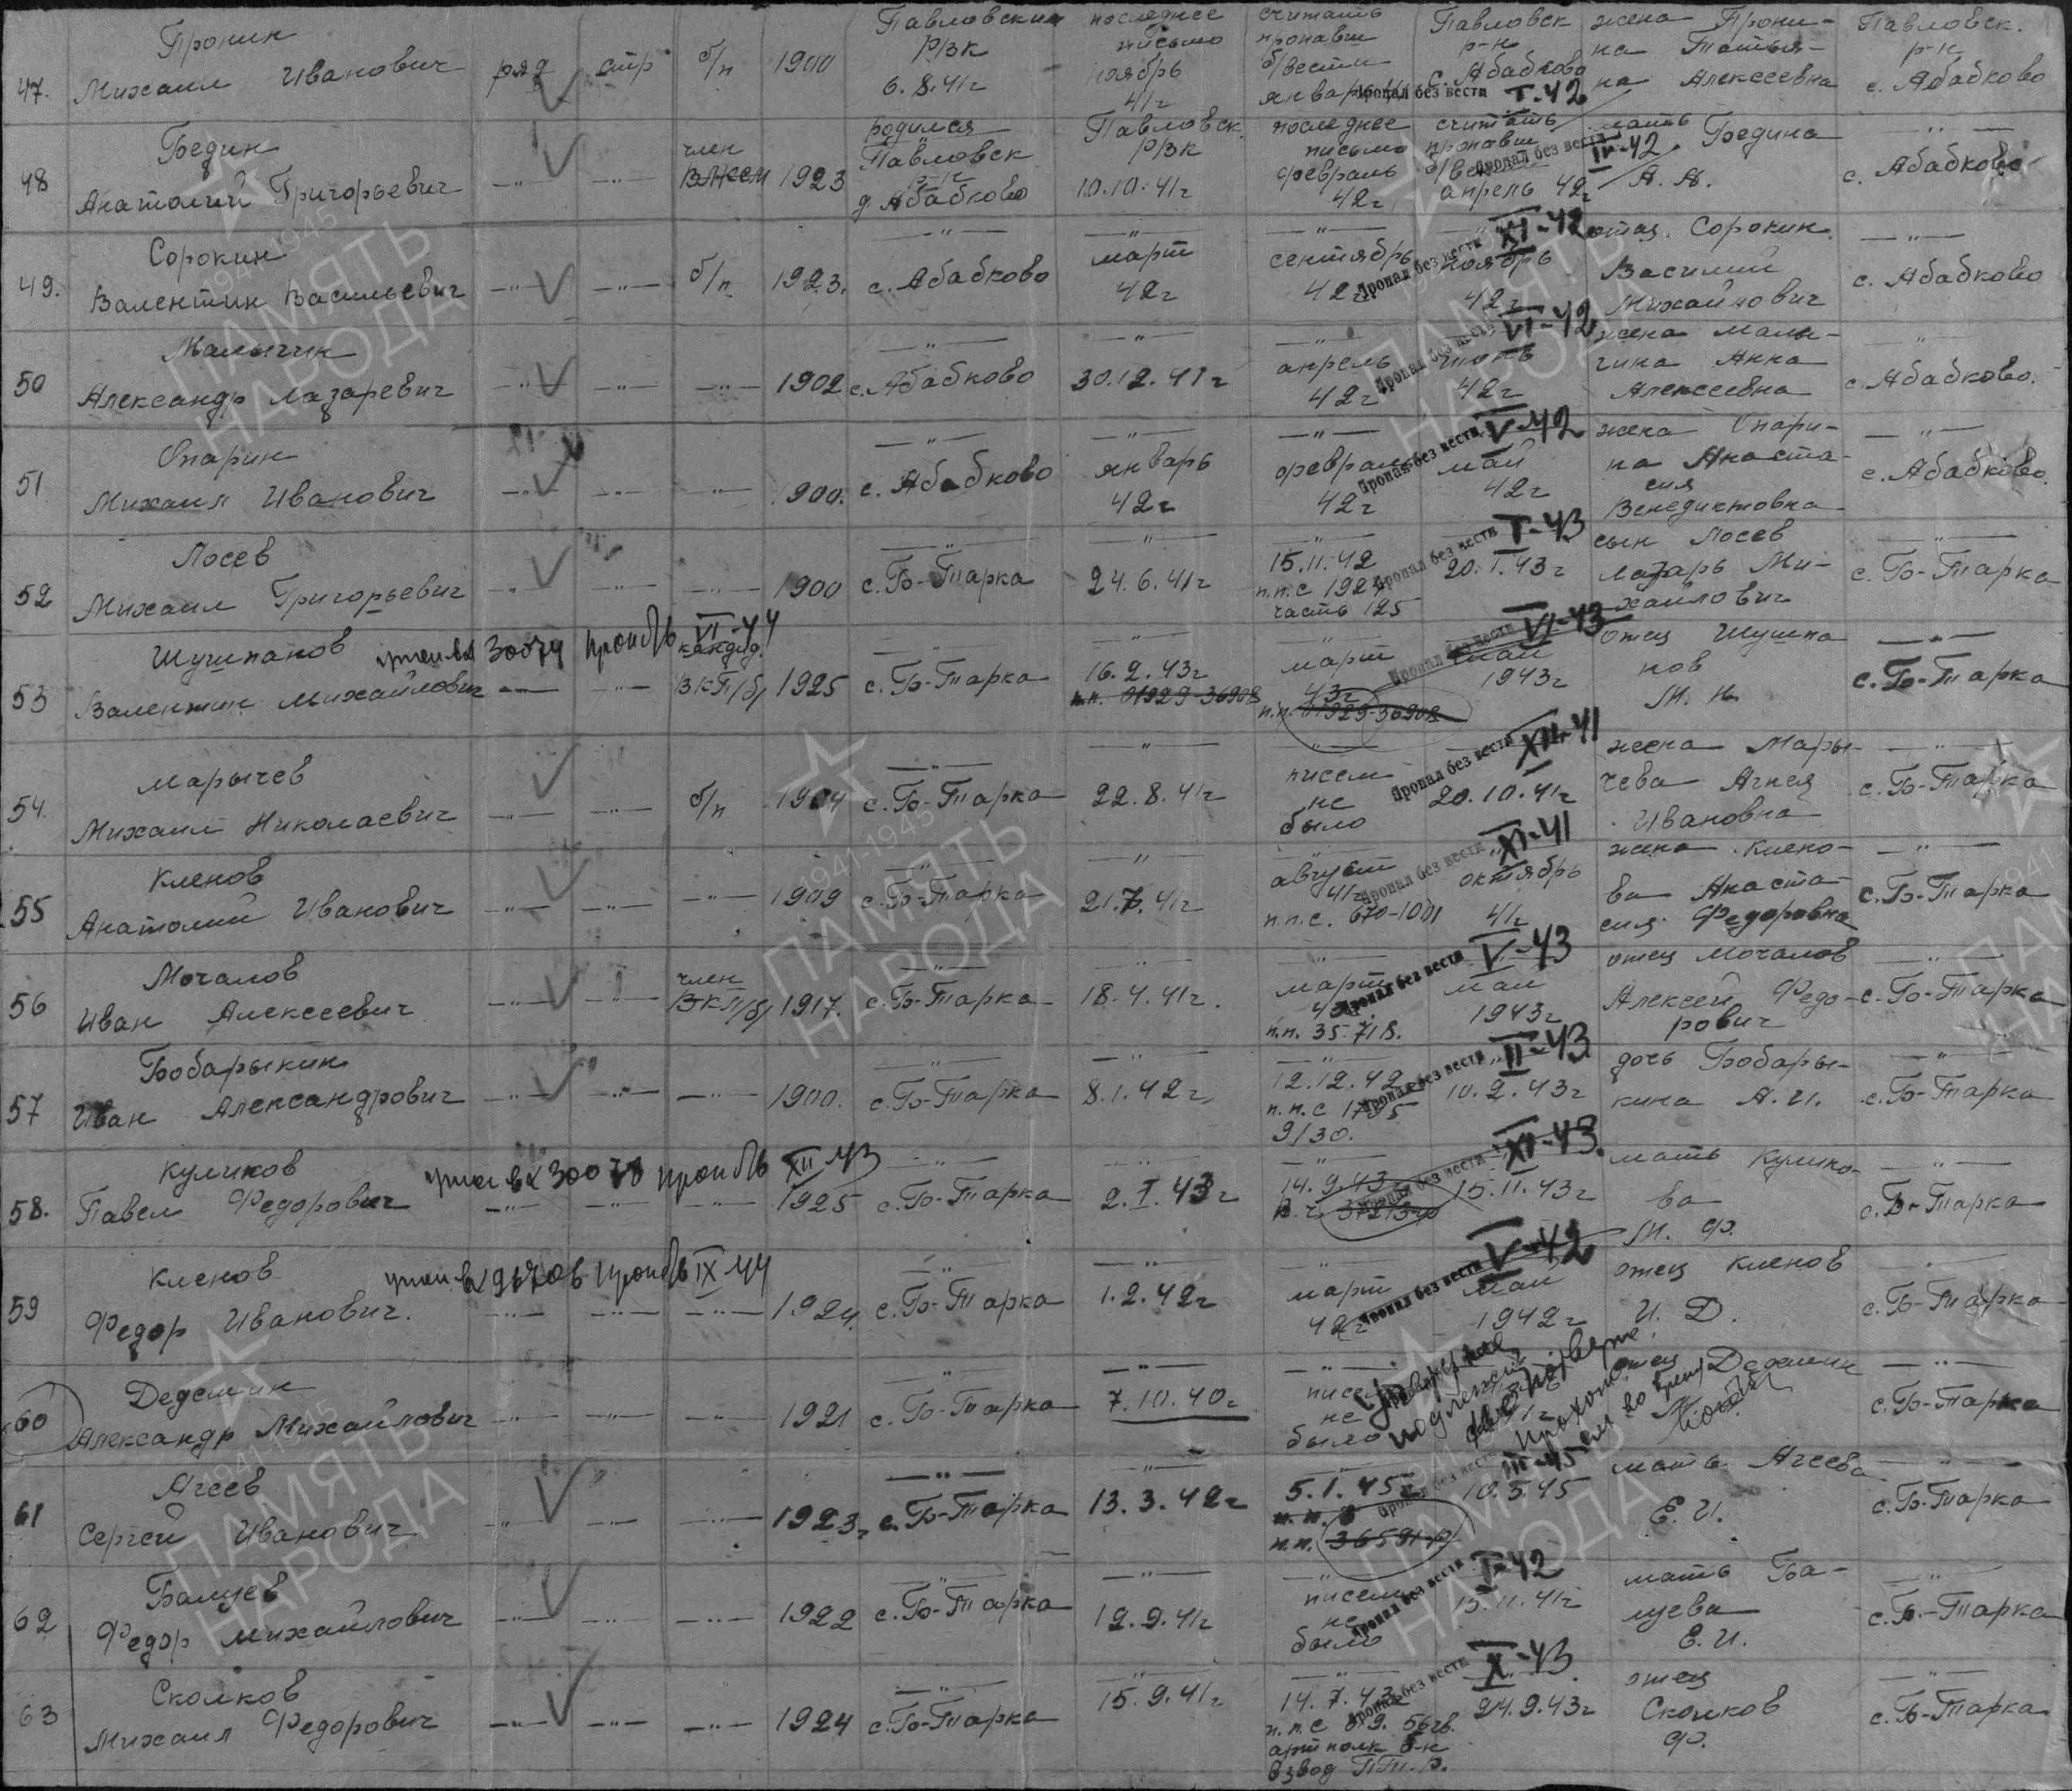 47. Пронин Михаил Иванович ряд стр б/п 1900 Павловским РВК 6.8.41г последнее письмо ноябрь 41г считать пропавш б/вести январь Павловск р-н с. Абабково Пропал без вести I-42 жена Пронина Татьяна Алексеевна Павловск. р-н с. Абабково
48 Бедин Анатолий Григорьевич —"— —"— член ВЛКСМ 1923 родился Павловск р-н д. Абабково Павловск. РВК 10.10.41г последнее письмо февраль 42г считать пропавш б/вести апрель 42г Пропал без вести IV-42 мать Бедина А. А. —"— с. Абабково
49. Сорокин Валентин Васильевич —"— —"— б/п 1923. —"— с. Абабково —"— март 42г —"— сентябрь 42г ноябрь 42г Пропал без вести XI-42 отец Сорокин Василий Михайлович —"— с. Абабково
50 Малычин Александр Лазаревич —"— —"— —"— 1902 —"— с. Абабково —"— 30.12.41г —"— апрель 42г июнь 42г Пропал без вести VI-42 жена Малычина Анна Алексеевна —"— с. Абабково.
51 Опарин Михаил Иванович —"— —"— —"— 1900. —"— с. Абабково —"— январь 42г —"— февраль 42г май 42г Пропал без вести V-42 жена Опарина Анастасия Венедиктовна —"— с. Абабково.
52 Лосев Михаил Григорьевич —"— —"— —"— 1900 —"— с. Б-Тарка —"— 24.6.41г —"— 15.11.42 п.п.с 1927 часть 125 20.I.43г Пропал без вести I-43 сын Лосев Лазарь Михайлович —"— с. Б-Тарка
53 Шушпанов Валентин Михайлович 30074 VI-44 —"— —"— кандид. ВКП/б/ 1925 —"— с. Б-Тарка —"— 16.2.43г п.п. 01929-36908 —"— март 43г п.п. 01929-36908 май 1943г Пропал без вести VI-43 отец Шушпанов М. Н. —"— с. Б-Тарка
54. Марычев Михаил Николаевич —"— —"— б/п 1904 —"— с. Б-Тарка —"— 22.8.41г —"— писем не было 20.10.41г Пропал без вести XII-41 жена Марычева Агнея Ивановна —"— с. Б-Тарка
55 Кленов Анатолий Иванович —"— —"— —"— 1909 —"— с. Б-Тарка —"— 21.7.41г —"— август 41г п.п.с. 670-1001 октябрь 41г Пропал без вести XI-41 жена Кленова Анастасия Федоровна —"— с. Б-Тарка
56 Мочалов Иван Алексеевич —"— —"— член ВКП/б/ 1917. —"— с. Б-Тарка —"— 18.4.41г. —"— март п.п. 35718. май 1943г Пропал без вести V-43 отец Мочалов Алексей Федорович —"— с. Б-Тарка
57 Бобарыкин Иван Александрович —"— —"— —"— 1900. —"— с. Б-Тарка —"— 8.1.42г —"— 12.12.42 п.п.с 9/30. 10.2.43г Пропал без вести II-43 дочь Бобарыкина А. И. —"— с. Б-Тарка
58. Куликов Павел Федорович XII 43 —"— —"— —"— 1925 —"— с. Б-Тарка —"— 2.I.43г —"— 14.9.43 15.11.43г Пропал без вести XI-43. мать Куликова М. Ф. —"— с. Б-Тарка
59 Кленов Федор Иванович. IX 44 —"— —"— —"— 1924. —"— с. Б-Тарка —"— 1.2.42г —"— март 42г май 1942г Пропал без вести V-42 отец Кленов И. Д. —"— с. Б-Тарка
60 Дедешин Александр Михайлович —"— —"— —"— 1921 —"— с. Б-Тарка —"— 7.10.40г —"— писем не было отец Дедешин М. —"— с. Б-Тарка
61 Агеев Сергей Иванович —"— —"— —"— 1923. —"— с. Б-Тарка —"— 13.3.42г —"— 5.1.45г п.п. 10.3.45 Пропал без вести III-45 мать Агеева Е. И. —"— с. Б-Тарка
62 Балуев Федор Михайлович —"— —"— —"— 1922 —"— с. Б-Тарка —"— 19.9.41г —"— писем не было 15.11.41г Пропал без вести I-42 мать Балуева Е. И. —"— с. Б-Тарка
63 Сколков Михаил Федорович —"— —"— —"— 1924 —"— с. Б-Тарка —"— 15.9.41г —"— 14.7.43г арт полк взвод П.Т.Р. 24.9.43г Пропал без вести X-43 отец Сколков Ф. —"— с. Б-Тарка
1941-1945
ПАМЯТЬ
НАРОДА